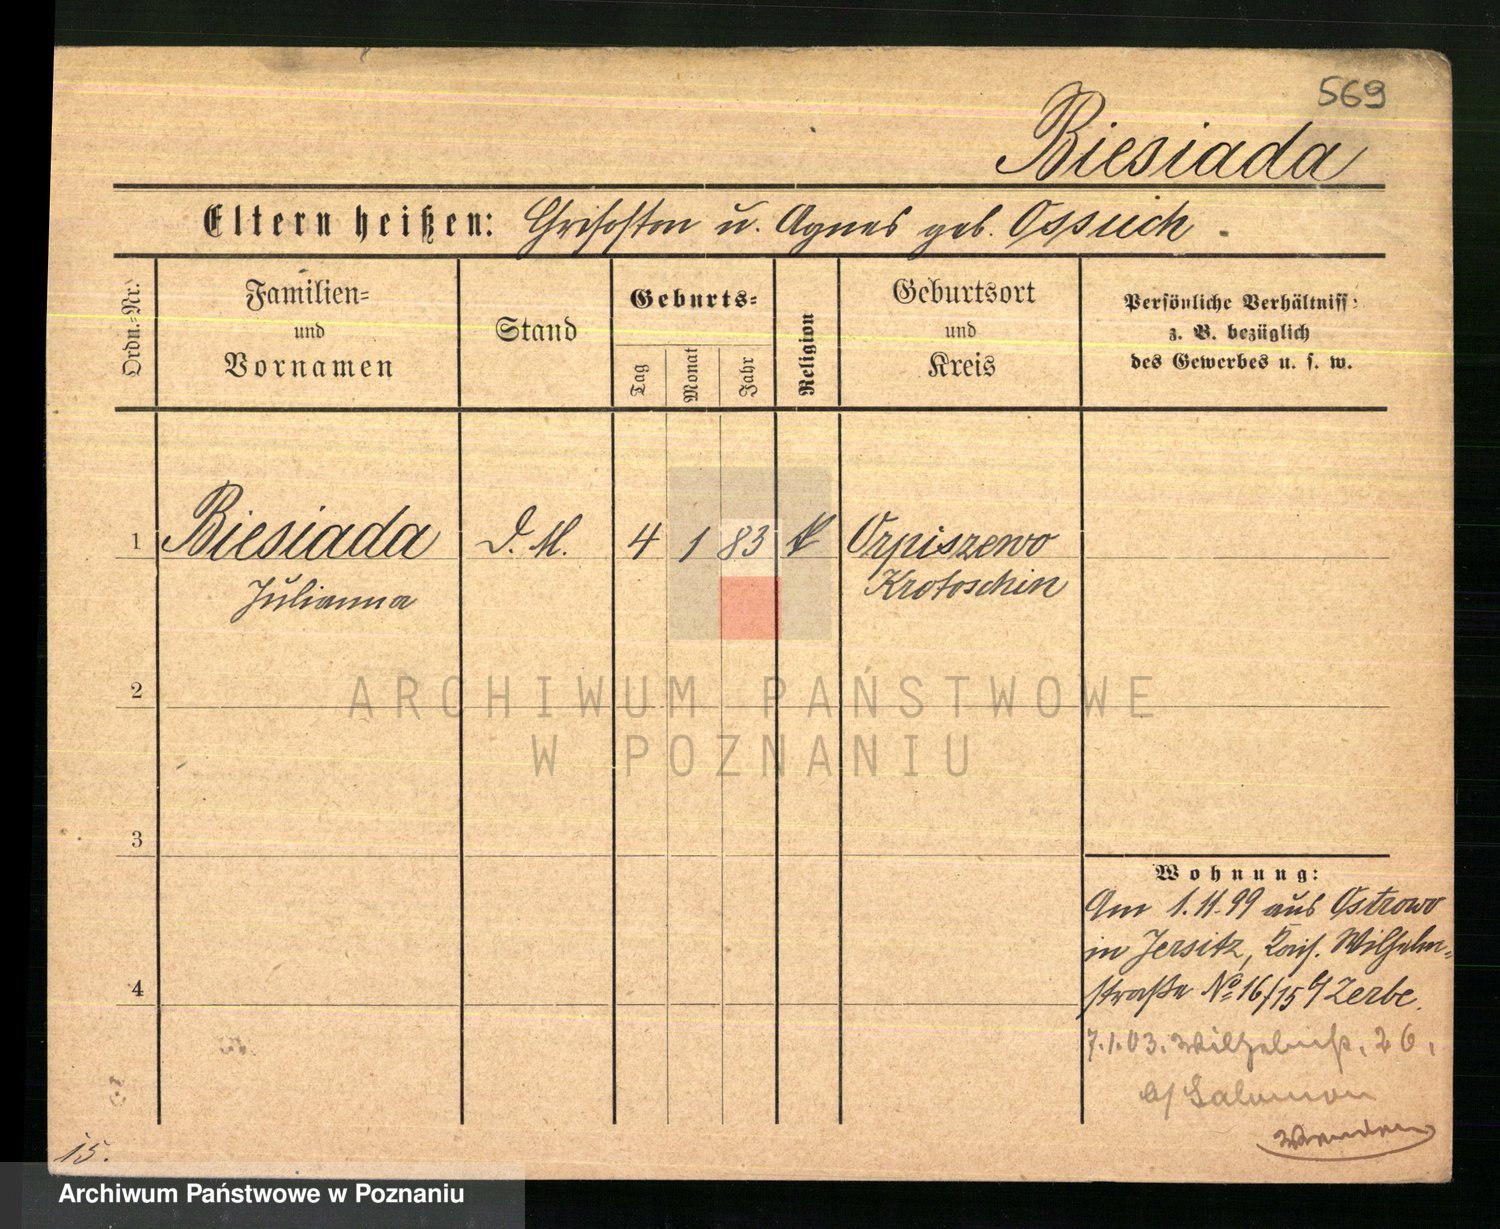 569
Biesiada
Eltern heißen: Chrisoston u. Agnes geb. Ossuch.
Ordn.-Nr.
Familien-
und
Vornamen
Stand
Geburts-
Tag
Monat
Jahr
Religion
Geburtsort
und
Kreis
Persönliche Verhältniss
z. B. bezüglich
des Gewerbes u. s. w.
1 Biesiada D. M. 4 1 83 k Orpiszewo
Julianna Krotoschin
2
ARCHIWUM PAŃSTWOWE
W POZNANIU
3
Wohnung:
Am 1.11.99 aus Ostrowo
in Jersitz, Kais. Wilhelm-
4
straße No 16/15 Zerbe.
7.1.03. Wilhelmst. 26.
b/ Salomon
15.
Archiwum Państwowe w Poznaniu